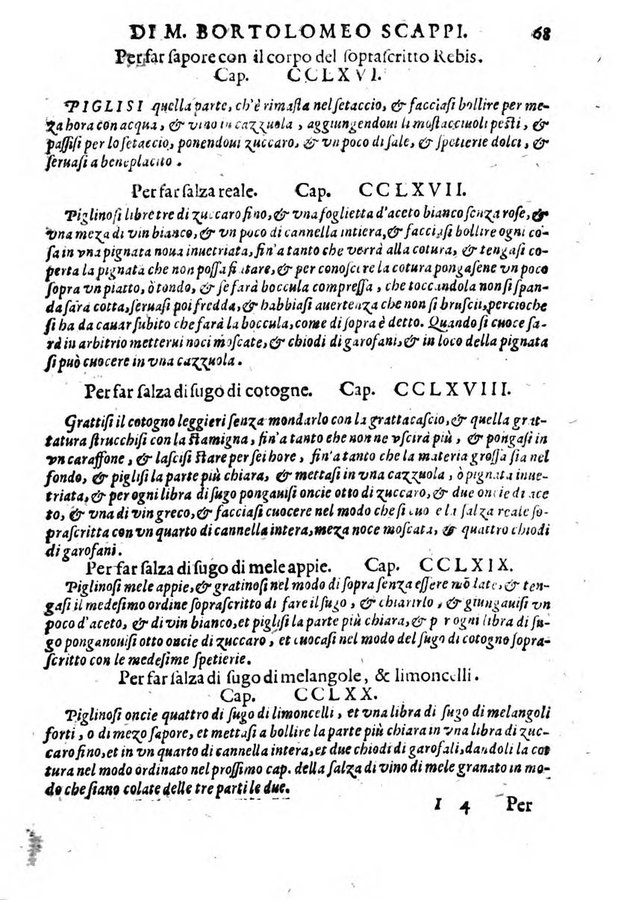 DI M. BORTOLOMEO SCAPPI. 68
Per far sapore con il corpo del soprascritto Rebis.
Cap. CCLXVI.
PIGLISI quella parte, ch'è rimasta nel setaccio, & facciasi bollire per me-
za hora con acqua, & vino in cazzuola, aggiungendoui li mostacciuoli pesti, &
passisi per lo setaccio, ponendoui zuccaro, & vn poco di sale, & spetierie dolci, &
seruasi a beneplacito.
Per far salza reale. Cap. CCLXVII.
Piglinosi libre tre di zuccaro fino, & vna foglietta d'aceto bianco senza rose, &
vna meza di vin bianco, & vn poco di cannella intiera, & facciasi bollire ogni co-
sa in vna pignata noua inuetriata, fin'a tanto che verrà alla cotura, & tengasi co-
perta la pignata che non possa fiatare, & per conoscere la cotura pongasene vn poco
sopra vn piatto, ò tondo, & se farà boccula compressa, che toccandola non si span-
da sarà cotta, seruasi poi fredda, & habbiasi auertenza che non si brusci, percioche
si ha da cauar subito che farà la boccula, come di sopra è detto. Quando si cuoce sa-
rà in arbitrio metterui noci moscate, & chiodi di garofani, & in loco della pignata
si può cuocere in vna cazzuola.
Per far salza di sugo di cotogne. Cap. CCLXVIII.
Grattisi il cotogno leggieri senza mondarlo con la grattacascio, & quella grat-
tatura strucchisi con la stamigna, fin'a tanto che non ne vscirà più, & pongasi in
vn caraffone, & lascisi stare per sei hore, fin'a tanto che la materia grossa sia nel
fondo, & piglisi la parte più chiara, & mettasi in vna cazzuola, ò pignata inue-
triata, & per ogni libra di sugo ponganisi oncie otto di zuccaro, & due oncie di ace
to, & vna di vin greco, & facciasi cuocere nel modo che si cuo e la salza reale so-
prascritta con vn quarto di cannella intera, meza noce moscata, & quattro chiodi
di garofani.
Per far salza di sugo di mele appie. Cap. CCLXIX.
Piglinosi mele appie, & gratinosi nel modo di sopra senza essere mōlate, & ten-
gasi il medesimo ordine soprascritto di fare il sugo, & chiarirlo, & giungauisi vn
poco d'aceto, & di vin bianco, et piglisi la parte più chiara, & p r ogni libra di su-
go ponganouisi otto oncie di zuccaro, et cuocasi nel modo del sugo di cotogno sopra-
scritto con le medesime spetierie.
Per far salza di sugo di melangole, & limoncelli.
Cap. CCLXX.
Piglinosi oncie quattro di sugo di limoncelli, et vna libra di sugo di melangoli
forti, o di mezo sapore, et mettasi a bollire la parte più chiara in vna libra di zuc-
caro fino, et in vn quarto di cannella intera, et due chiodi di garofali, dandoli la cot
tura nel modo ordinato nel prossimo cap. della salza di vino di mele granato in mo-
do che siano colate delle tre parti le due.
I 4 Per